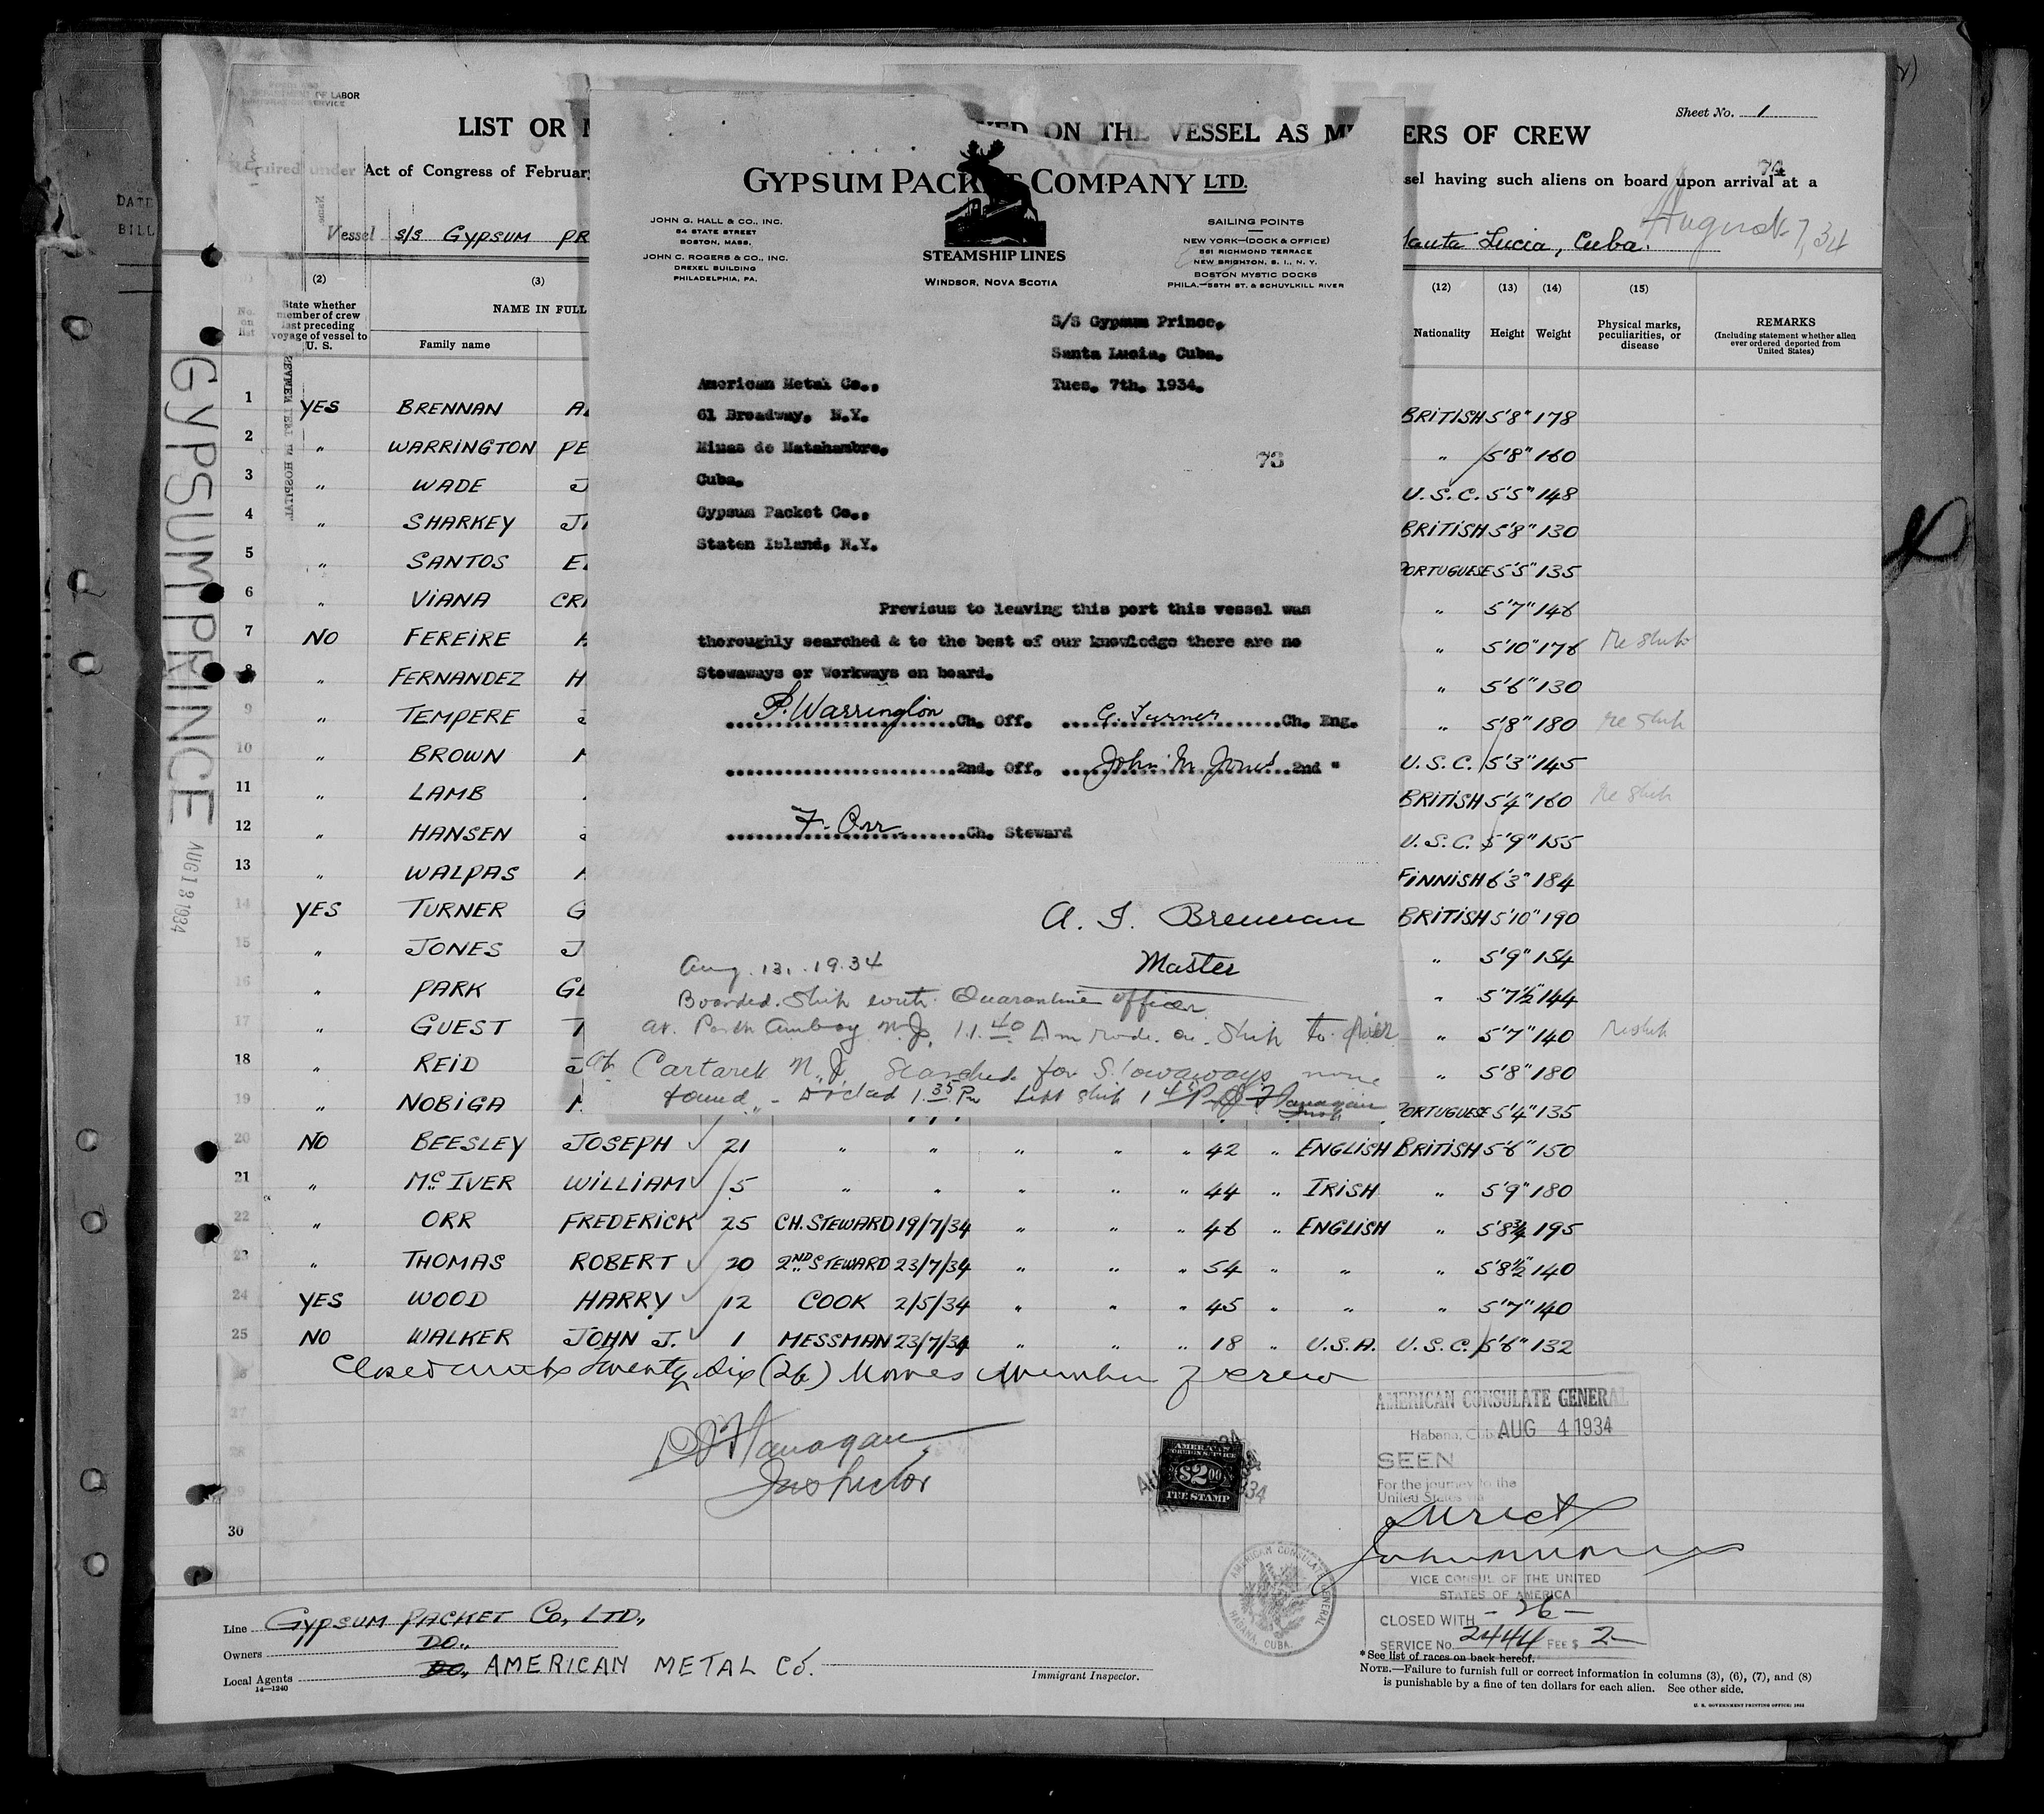 Sheet No. 1
LIST OR
ON THE VESSEL AS
ERS OF CREW
Required under Act of Congress of February
sel having such aliens on board upon arrival at a
Vessel S/S GYPSUM PR
Santa Lucia, Cuba.
August 7, 34
GYPSUM PACKET COMPANY LTD.
JOHN G. HALL & CO., INC.
84 STATE STREET
BOSTON, MASS.
JOHN C. ROGERS & CO., INC.
DREXEL BUILDING
PHILADELPHIA, PA.
STEAMSHIP LINES
WINDSOR, NOVA SCOTIA
SAILING POINTS
NEW YORK—(DOCK & OFFICE)
561 RICHMOND TERRACE
NEW BRIGHTON, S. I., N. Y.
BOSTON MYSTIC DOCKS
PHILA.—58TH ST. & SCHUYLKILL RIVER
S/S Gypsum Prince,
Santa Lucia, Cuba.
Tues. 7th. 1934.
American Metal Co.,
61 Broadway, N.Y.
Minas de Matahambre,
Cuba.
73
Gypsum Packet Co.,
Staten Island, N.Y.
Previous to leaving this port this vessel was
thoroughly searched & to the best of our knowledge there are no
Stowaways or Workways on board.
P. Warrington Ch. Off. G. Turner Ch. Eng.
2nd. Off. John M Jones 2nd "
F. Orr Ch. Steward
A. I. Brennan
Master
Aug. 13, 1934
Boarded Ship with Quarantine officer
at Perth Amboy N.J. 11.40 Am rode on Ship to pier
at Cartaret N.J. Searched for Stowaways none
found - Docked 1.35 Pm Left ship 1 45 P Flanagan
GYPSUM PRINCE
AUG 13 1934
No. on list
(2) (3) (12) (13) (14) (15)
State whether member of crew last preceding voyage of vessel to U. S.
NAME IN FULL
Family name
Nationality Height Weight
Physical marks, peculiarities, or disease
REMARKS
(Including statement whether alien ever ordered deported from United States)
1 YES BRENNAN BRITISH 5'8" 178
2 " WARRINGTON PE " 5'8" 160
3 " WADE J U.S.C. 5'5" 148
4 " SHARKEY BRITISH 5'8" 130
5 " SANTOS PORTUGUESE 5'5" 135
6 " VIANA CRI " 5'7" 146
7 NO FEREIRE " 5'10" 176 Reship
8 " FERNANDEZ H " 5'6" 130
9 " TEMPERE " 5'8" 180 Reship
10 " BROWN U.S.C. 5'3" 145
11 " LAMB BRITISH 5'4" 160 Reship
12 " HANSEN U.S.C. 5'9" 155
13 " WALPAS FINNISH 6'3" 184
14 YES TURNER G BRITISH 5'10" 190
15 " JONES J " 5'9" 154
16 " PARK GL " 5'7½" 144
17 " GUEST " 5'7" 140 Reship
18 " REID " 5'8" 180
19 " NOBIGA PORTUGUESE 5'4" 135
20 NO BEESLEY JOSEPH 21 " " " " " 42 " ENGLISH BRITISH 5'6" 150
21 " McIVER WILLIAM 5 " " " " " 44 " IRISH " 5'9" 180
22 " ORR FREDERICK 25 CH. STEWARD 19/7/34 " " " 46 " ENGLISH " 5'8¾ 195
23 " THOMAS ROBERT 20 2ND STEWARD 23/7/34 " " " 54 " " " 5'8½" 140
24 YES WOOD HARRY 12 COOK 2/5/34 " " " 45 " " " 5'7" 140
25 NO WALKER JOHN J. 1 MESSMAN 23/7/34 " " " 18 " U.S.A. U.S.C. 5'6" 132
26 Closed with Twenty Six (26) Names Member of crew
27
28
29
30
Flanagan
Inspector
AMERICAN
FOREIGN SERVICE
$2.00
FEE STAMP
AMERICAN CONSULATE GENERAL
Habana, Cuba AUG 4 1934
SEEN
For the journey to the
United States via
Direct
VICE CONSUL OF THE UNITED
STATES OF AMERICA
CLOSED WITH - 26 -
SERVICE No. 2444 FEE $ 2-
AMERICAN CONSULATE GENERAL
HABANA, CUBA.
Line GYPSUM PACKET CO., LTD.,
Owners DO.,
Local Agents DO., AMERICAN METAL CO.
14—1240
Immigrant Inspector.
*See list of races on back hereof.
NOTE.—Failure to furnish full or correct information in columns (3), (6), (7), and (8)
is punishable by a fine of ten dollars for each alien. See other side.